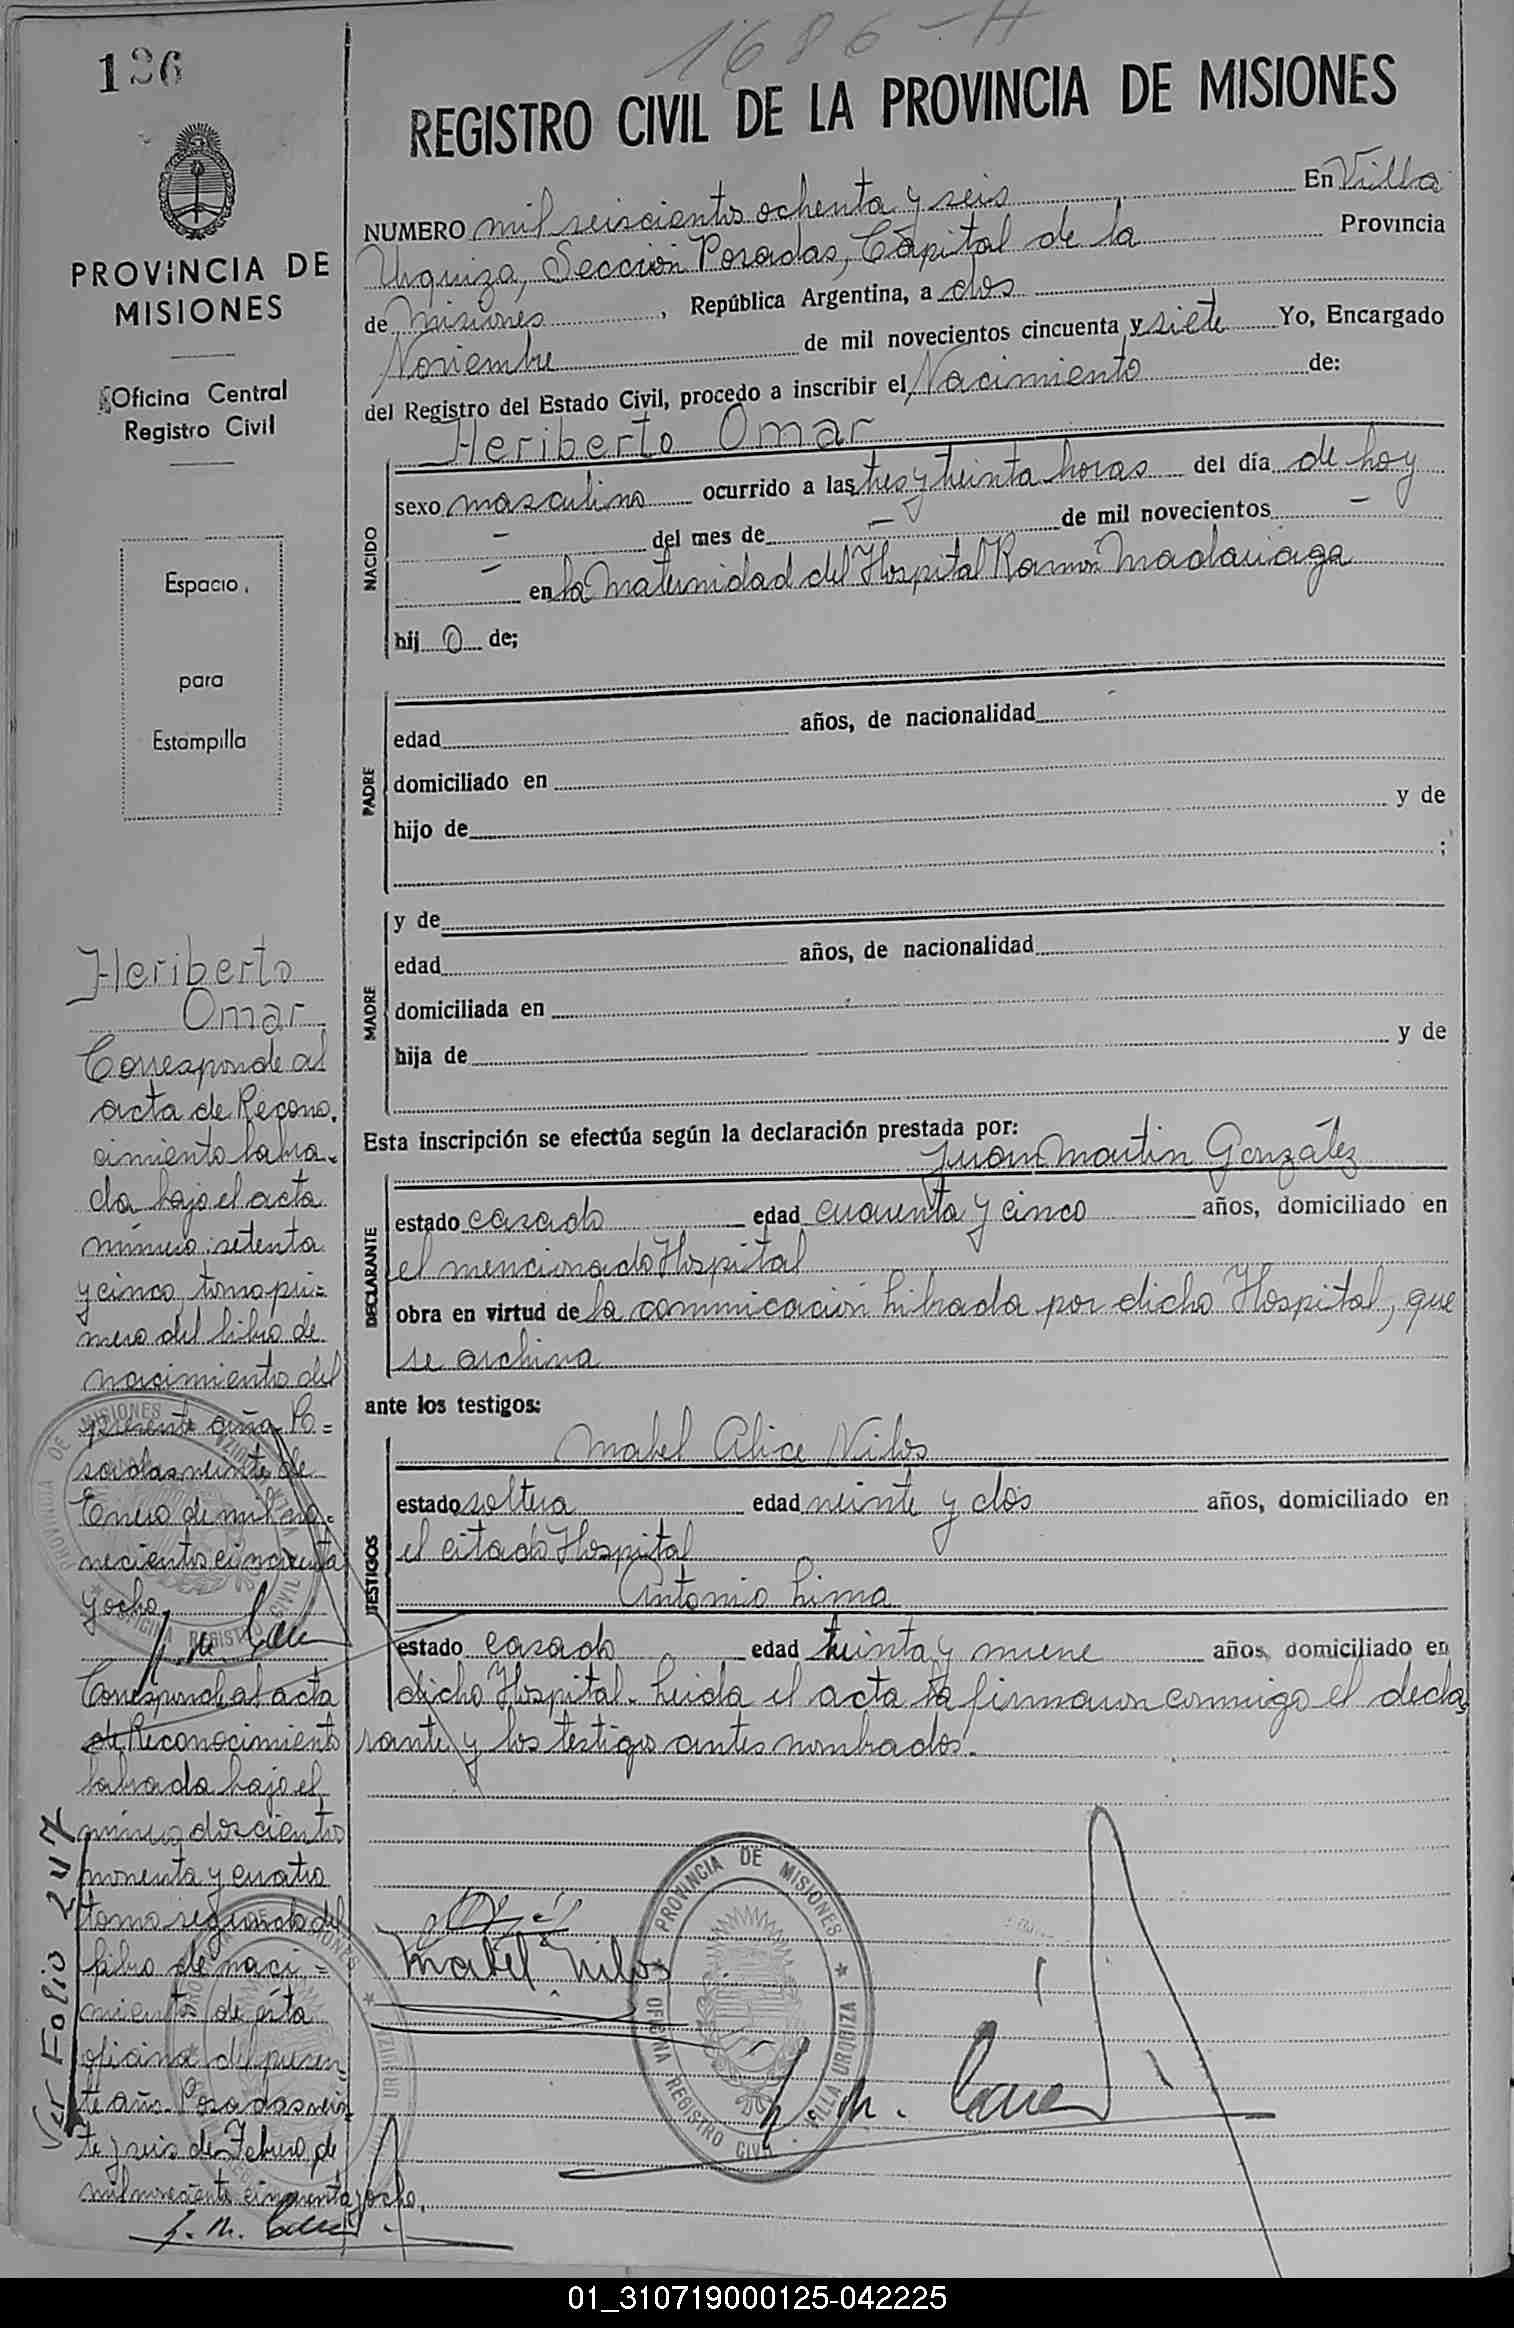 1686-H
126
REGISTRO CIVIL DE LA PROVINCIA DE MISIONES
PROVINCIA DE
MISIONES
Oficina Central
Registro Civil
Espacio
para
Estampilla
NUMERO mil seiscientos ochenta y seis En Villa
Urquiza, Sección Posadas, Capital de la Provincia
de Misiones, República Argentina, a dos
Noviembre de mil novecientos cincuenta y siete Yo, Encargado
del Registro del Estado Civil, procedo a inscribir el Nacimiento de:
Heriberto Omar
NACIDO
sexo masculino ocurrido a las tres y treinta horas del día de hoy
- del mes de - de mil novecientos -
- en la Maternidad del Hospital Ramón Madariaga
hij o de;
PADRE
edad años, de nacionalidad
domiciliado en
hijo de y de
;
MADRE
y de
edad años, de nacionalidad
domiciliada en
hija de y de
Esta inscripción se efectúa según la declaración prestada por:
Juan Martin González
DECLARANTE
estado casado edad cuarenta y cinco años, domiciliado en
el mencionado Hospital
obra en virtud de la comunicación librada por dicho Hospital, que
se archiva
ante los testigos:
Mabel Alice Nilos
TESTIGOS
estado soltera edad veinte y dos años, domiciliado en
el citado Hospital
Antonio Lima
estado casado edad treinta y nueve años, domiciliado en
dicho Hospital. Leida el acta la firmaron conmigo el decla-
rante y los testigos antes nombrados.
Mabel Nilos
PROVINCIA DE MISIONES
OFICINA REGISTRO CIVIL
VILLA URQUIZA
Heriberto
Omar
Corresponde al
acta de Recono-
cimiento labra-
da bajo el acta
número: setenta
y cinco, tomo pri=
mero del libro de
nacimiento del
presente año. Po=
sadas, veinte de
Enero de mil no=
vecientos cincuenta
y ocho
Corresponde al acta
de Reconocimiento
labrada bajo el
número doscientos
noventa y cuatro
tomo segundo del
libro de naci=
mientos de esta
oficina del presen-
te año. Posadas vein-
te y seis de Febrero de
mil novecientos cincuenta y ocho.
Ver Folio 247
01_310719000125-042225